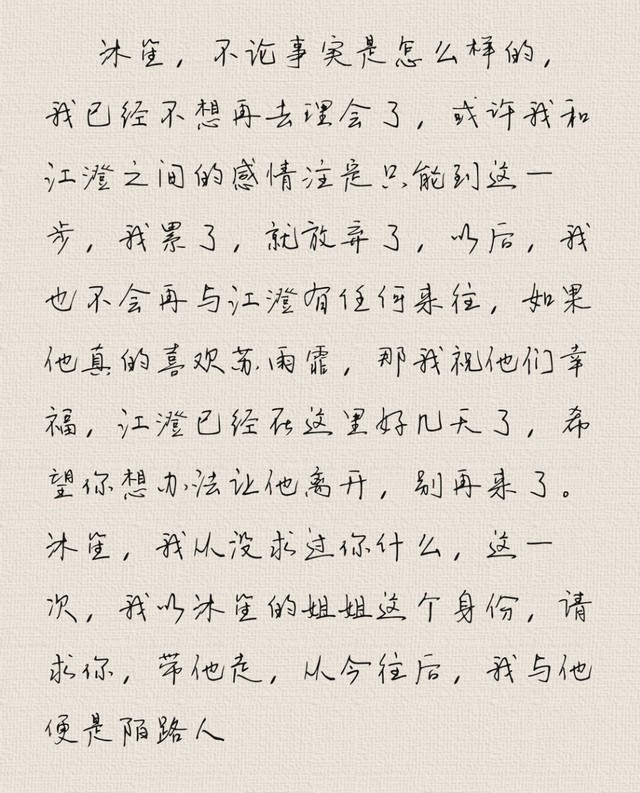 沐笙，不论事实是怎么样的，
我已经不想再去理会了，或许我和
江澄之间的感情注定只能到这一
步，我累了，就放弃了，以后，我
也不会再与江澄有任何来往，如果
他真的喜欢苏雨霏，那我祝他们幸
福，江澄已经在这里好几天了，希
望你想办法让他离开，别再来了。
沐笙，我从没求过你什么，这一
次，我以沐笙的姐姐这个身份，请
求你，带他走，从今往后，我与他
便是陌路人